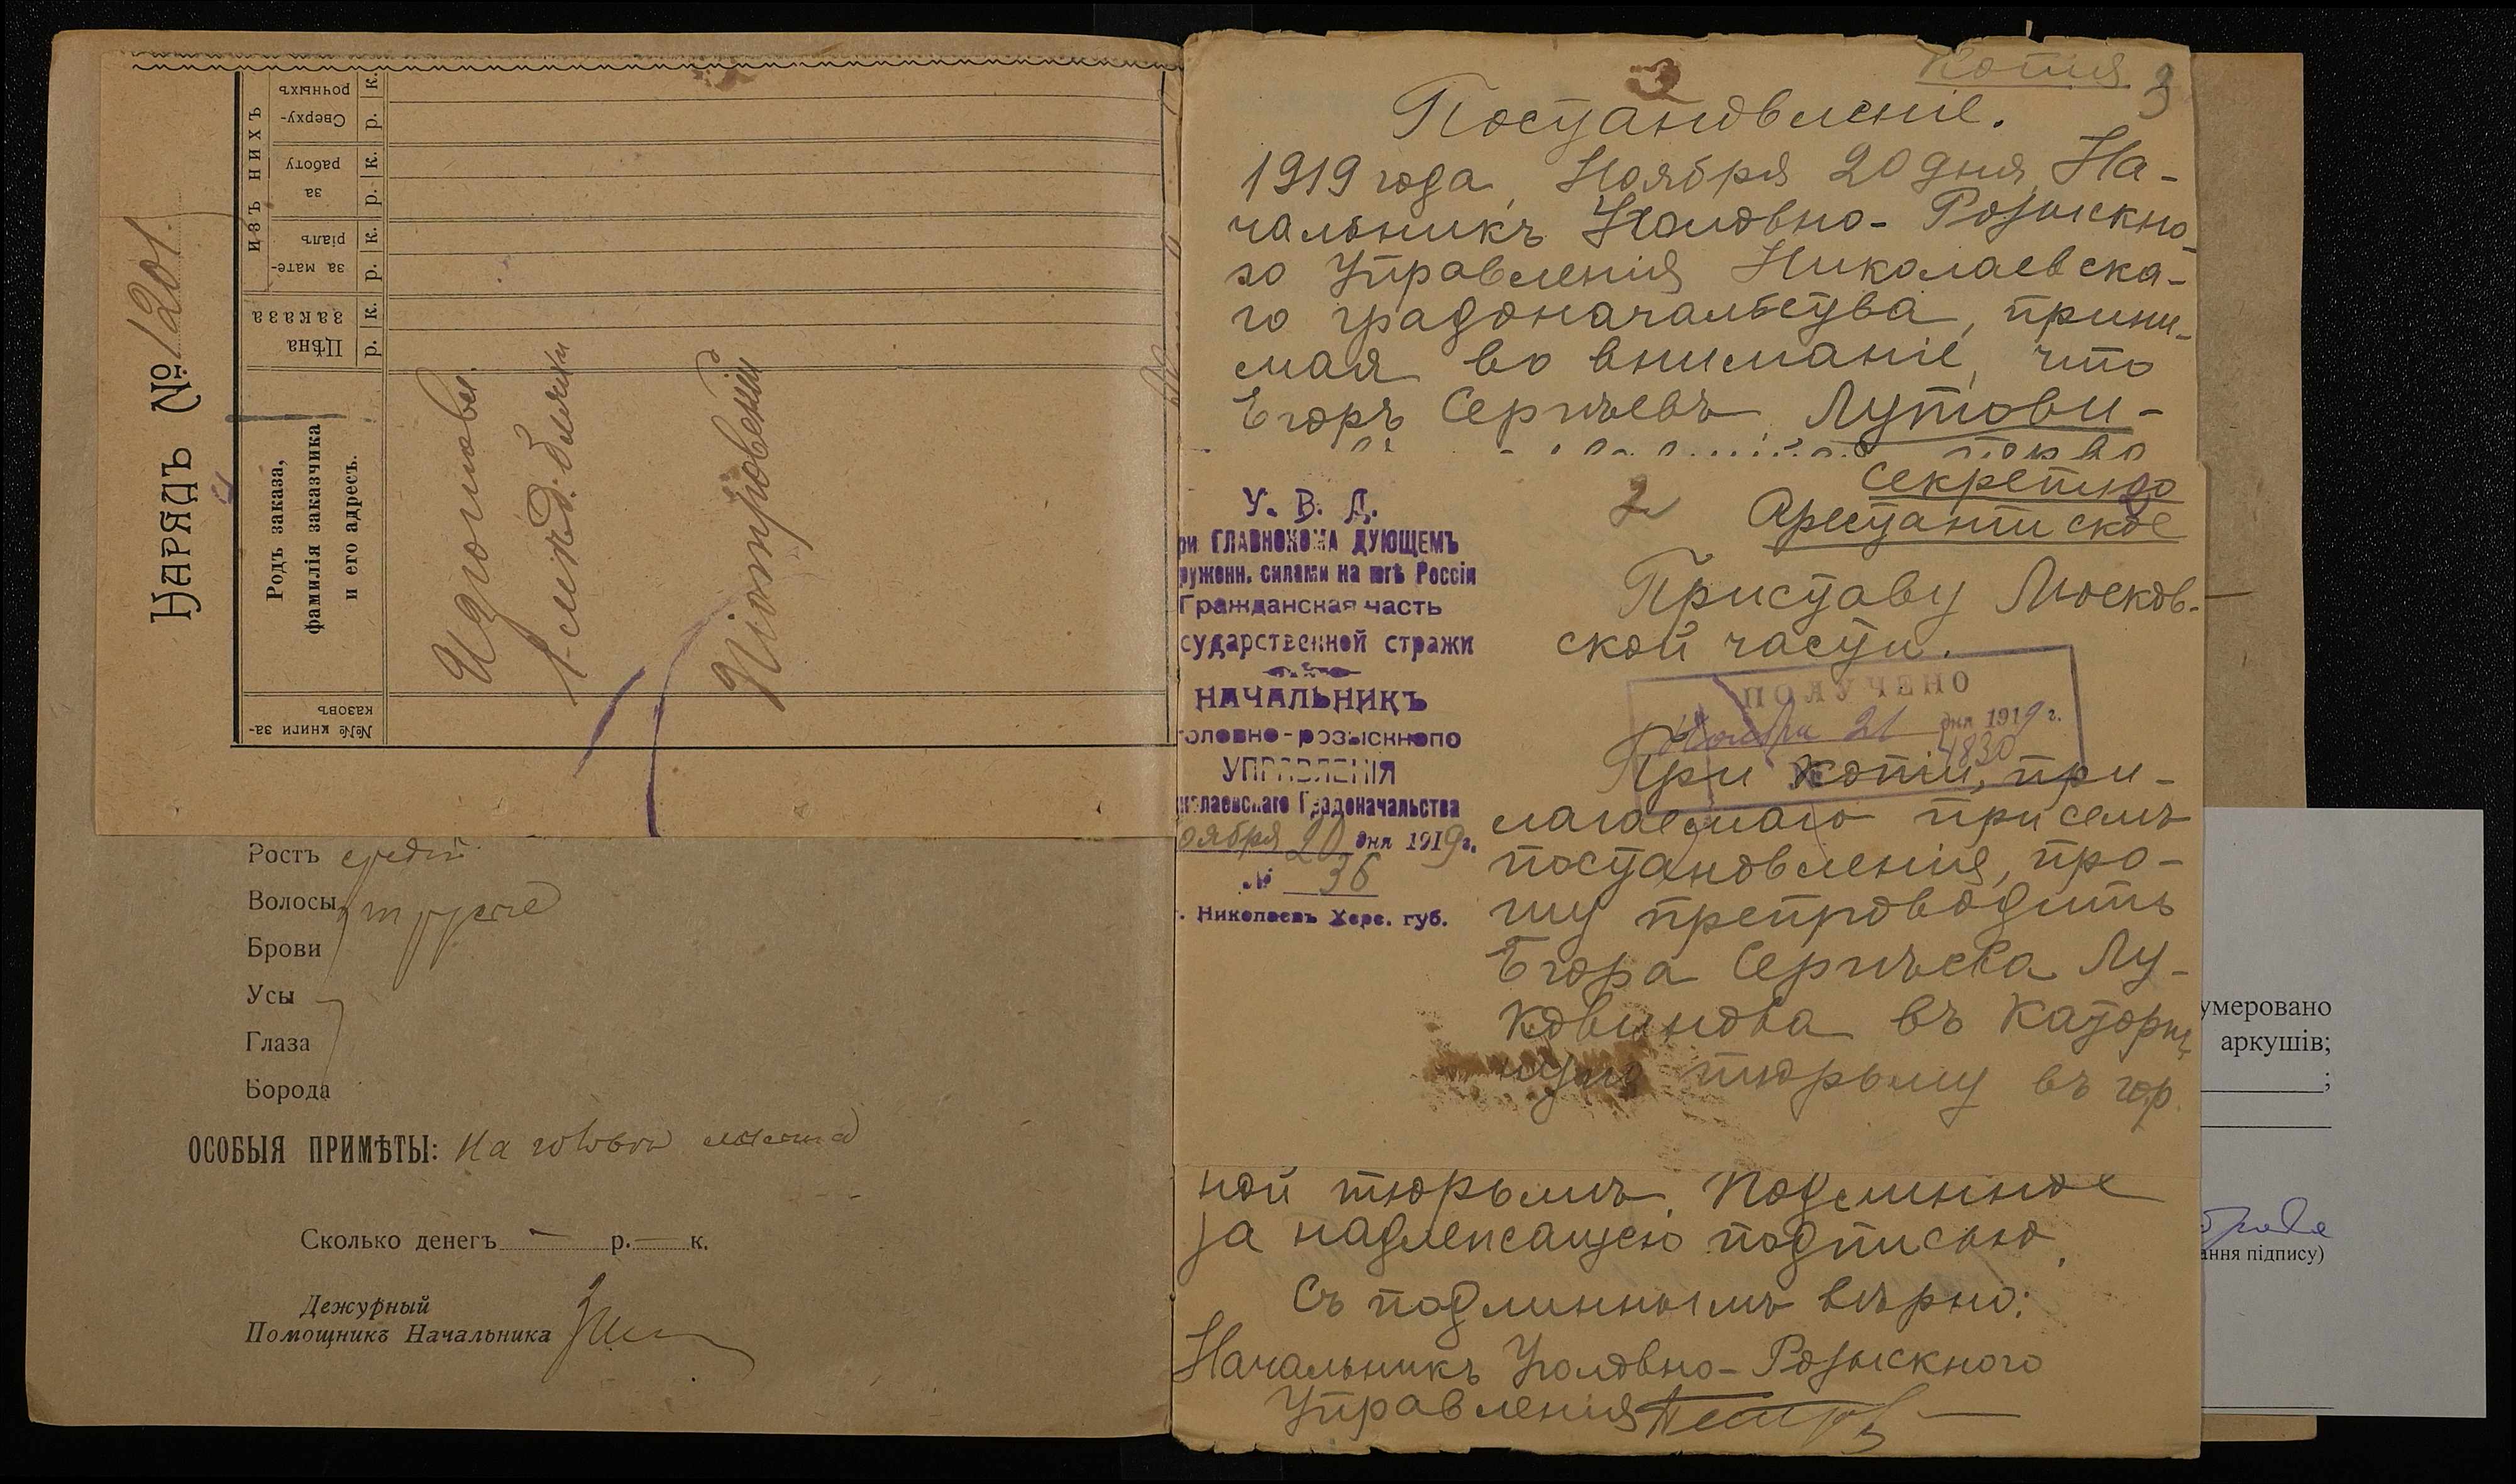 НАРЯДЪ № 1201
№№ книги за-
казовъ
Родъ заказа,
фамилія заказчика
и его адресъ.
Цѣна
заказа
р. к.
ИЗЪ НИХЪ
за мате-
ріалъ
р. к.
за
работу
р. к.
Сверху-
рочныхъ
р. к.
Ростъ средн
Волосы
Брови
Усы
Глаза
Борода
ОСОБЫЯ ПРИМѢТЫ: на голове
Сколько денегъ — р. — к.
Дежурный
Помощникъ Начальника
Копія
3
3
Постановленіе.
1919 года, Ноября 20 дня, На-
чальникъ Уголовно-Розыскно-
го Управленія Николаевска-
го градоначальства, прини-
мая во вниманіе, что
Егоръ Сергѣевъ
У. В. Д.
ри ГЛАВНОКОМА ДУЮЩЕМЪ
руженн. силами на югѣ Россіи
Гражданская часть
сударственной стражи
НАЧАЛЬНИКЪ
головно-розыскного
УПРАВЛЕНІЯ
колаевскаго Градоначальства
оября 20 дня 1919 г.
№ 36
г. Николаевъ Херс. губ.
Секретно
2 Арестантское
Приставу Москов-
ской части.
ПОЛУЧЕНО
Ноября 21 дня 1919 г.
4830
При копіи, при-
лагаемаго при семъ
постановленія, про-
шу препроводить
Егора Сергѣева Лу-
ковинова въ каторж
ную тюрьму въ гор.
ной тюрьмѣ. Подлинное
за надлежащею подписью,
Съ подлиннымъ вѣрно:
Начальникъ Уголовно-Розыскного
Управленія
умеровано
аркушів;
;
ання підпису)